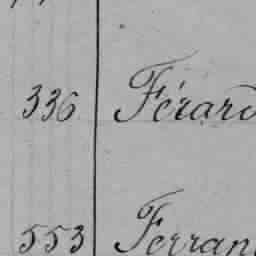 336 Férard
553 Ferran